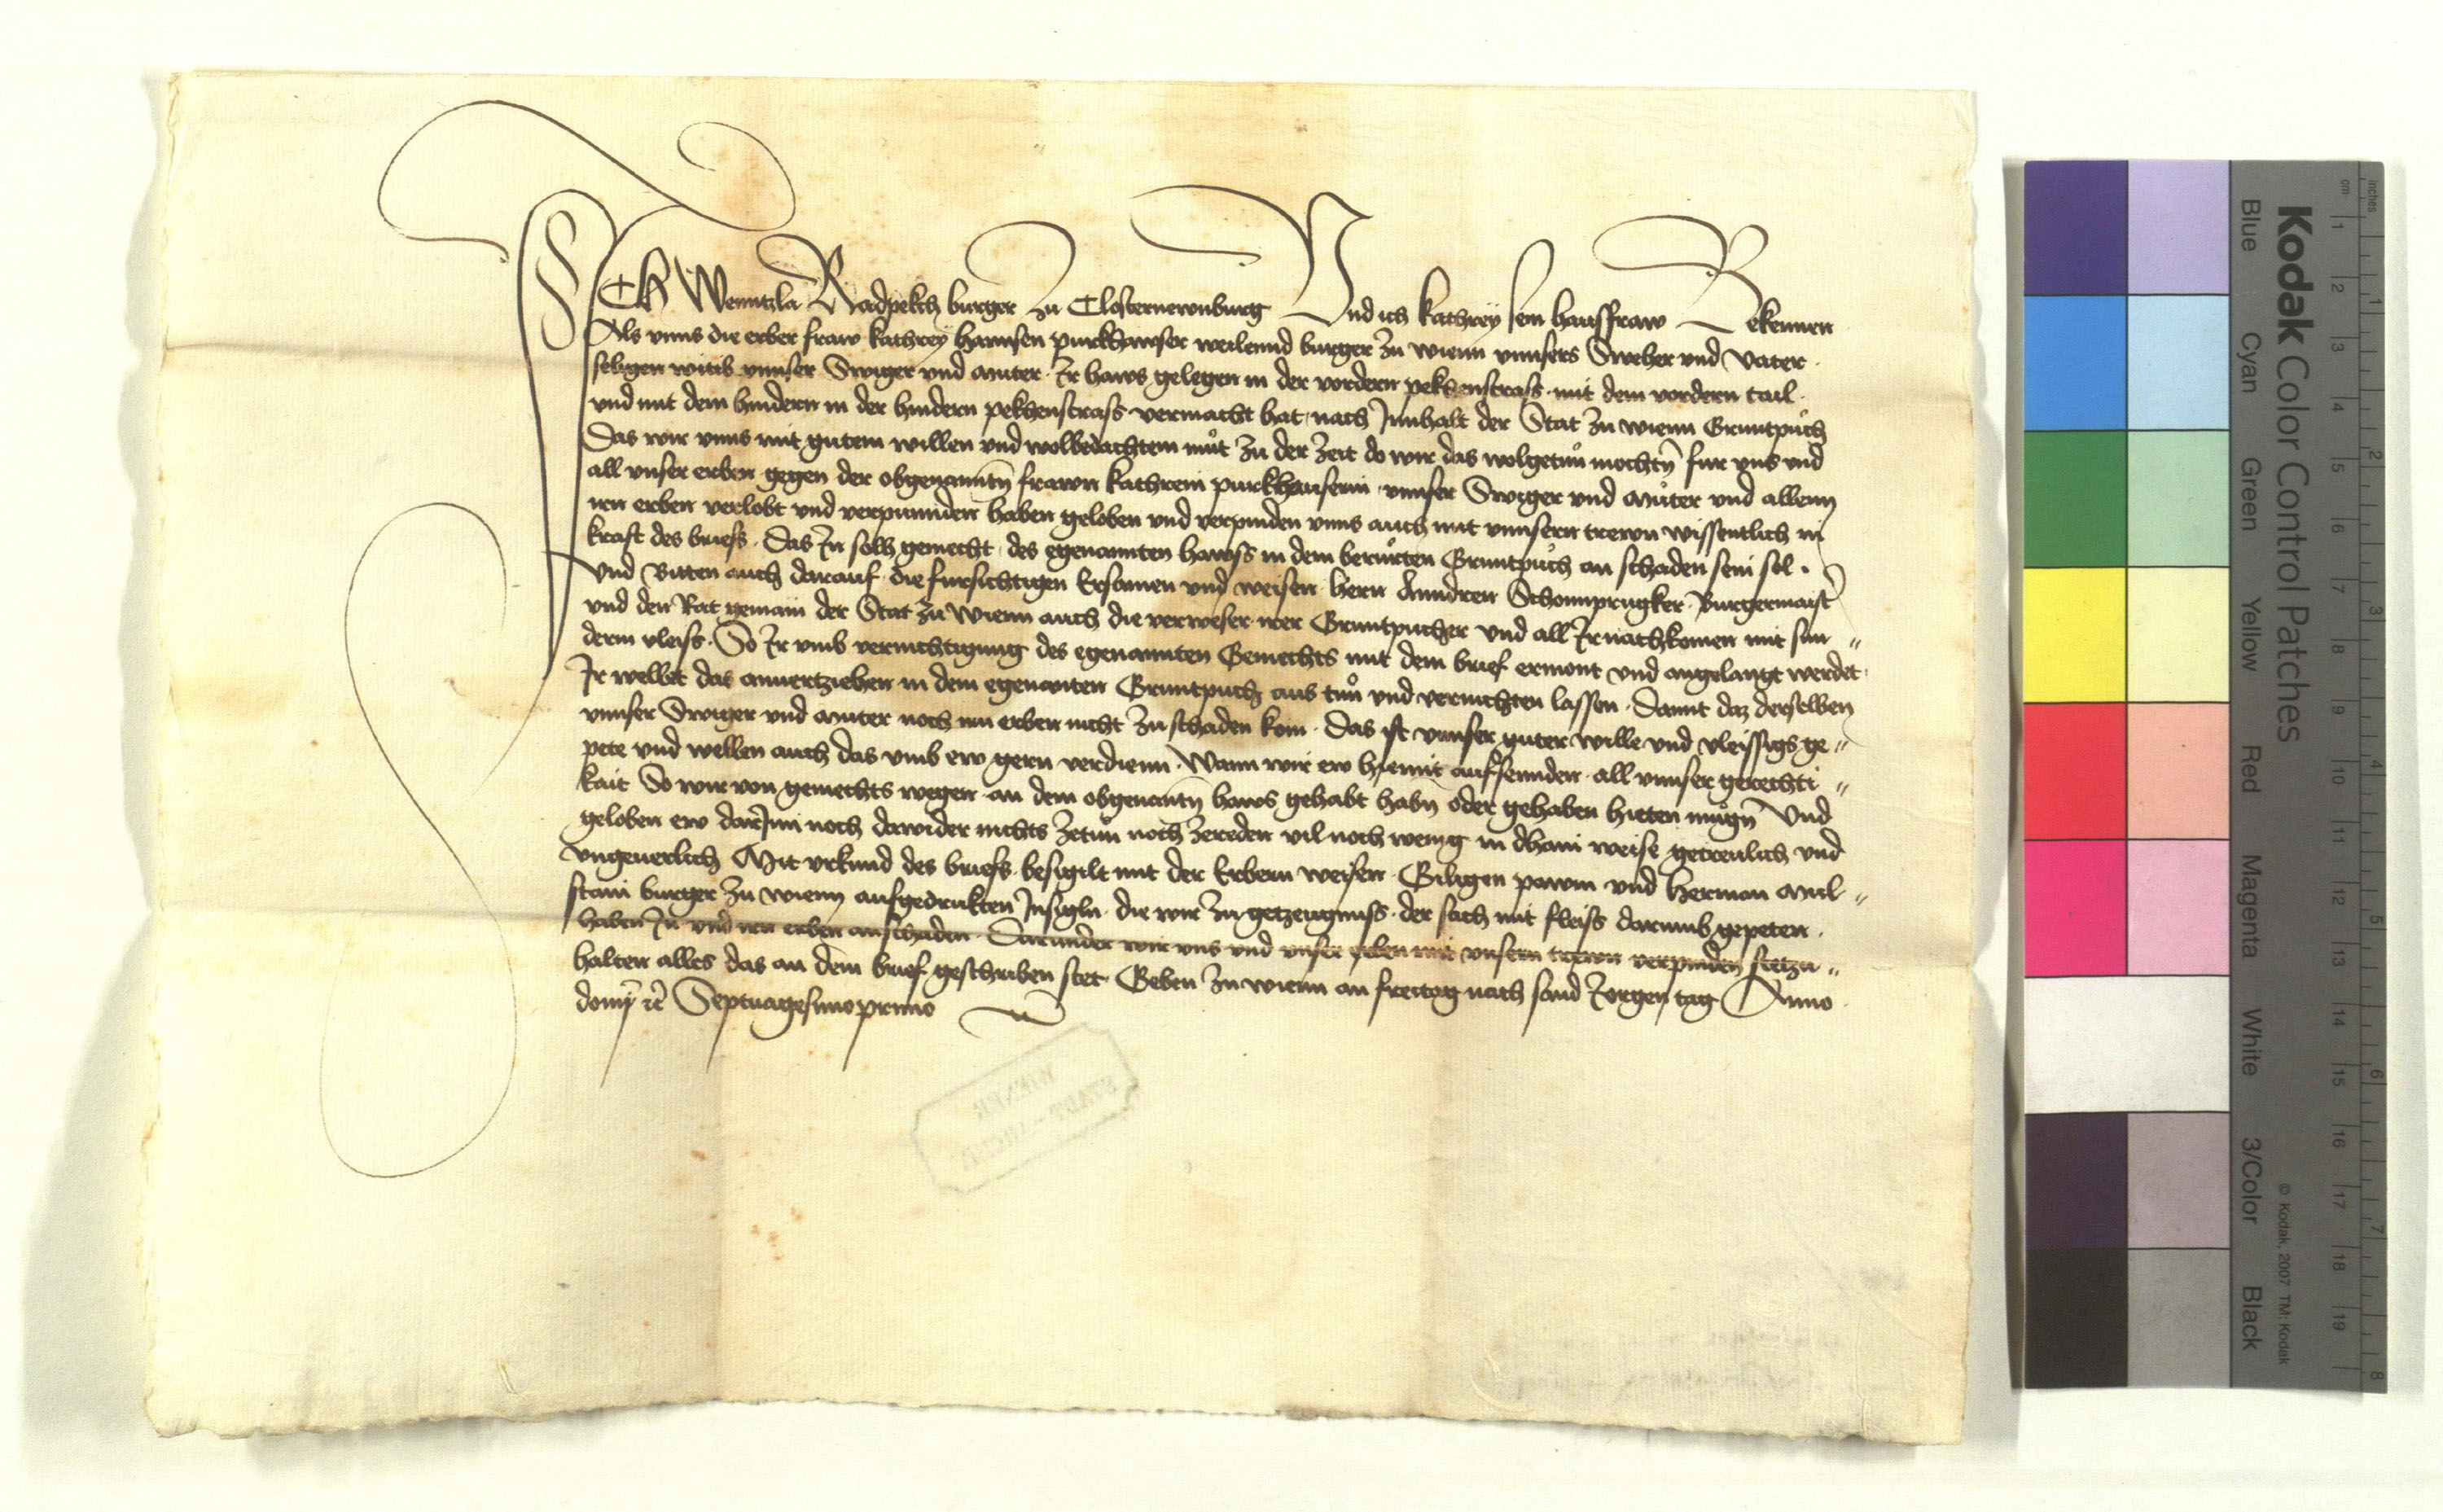 ICh Wenntzla Radpekch burger zu Closternewnburg Vnd ich Kathrey sein hausfraw Bekennen
Als vnns die erber fraw Kathrey Hannsen purkhauser weilennd burger zu wienn vnnsers Sweher vnd Vater
seligen witib vnnser Swiger vnd muter Ir haws gelegen in der vordern pekhenstrass mit dem vordern tail
vnd mit dem hindern in der hindern pekhenstrass vermacht hat nach Innhalt der Stat zu wienn Gruntpuch
Das wir vnns mit gutem willen vnd wolbedachtem mut zu der zeit do wir das wolgetun mochtn fur vns vnd
all vnser erben gegen der obgenanntn frawn Kathrein purkhauserin vnnser Swiger vnd muter vnd allenn
irn erben verlobt vnd verpunnden haben geloben vnd verpinden vnns auch mit vnnsern trewn wissentlich in
kraft des briefs Das In solh gemecht des egenannten hawss in dem berurten Gruntpuch an schaden sein sol
Vnd Bitten auch darauf die fursichtigen Ersamen vnd weisen hern Anndren Schonnprugker Burgermaist
vnd den Rat gemain der Stat zu Wienn auch die verweser irer Gruntpucher vnd all Ir nachkomen mit sun
derm vleiss So Ir vmb vernichtigung des egenannten Gemechts mit dem brief ermont vnd angelangt werdet
Ir wellet das anuertziehen in dem egenanten Gruntpuch aus tun vnd vernichten lassen Damit daz derselben
vnnser Swiger vnd muter noch irn erben nicht zu schaden kom Das ist vnnser guter wille vnd vleissigs ge
pete vnd wellen auch das vmb ew gern verdienn Wann wir ew hiemit aufsennden all vnnser gerechti
kait So wir von gemechts wegen an dem obgenantn haws gehabt habn oder gehaben hieten mugn Vnd
geloben ew darInn noch dawider nichts zetun noch zereden vil noch wenig in dhain weise getreulich vnd
vngeuerlich Mit vrkund des briefs besigilt mit der Erbern weisen Giligen pawm vnd Herman mul
stain burger zu wienn aufgedrukten Insigln die wir zu getzeugnuss der sach mit fleiss darumb gepeten
haben In vnd irn erben an schaden Darunder wir vns vnd vnser erben mit vnsern trewn verpinden stetzu
halten alles das an dem brief geschriben stet Geben zu wienn an freitag nach sand Jorgen tag Anno
domj etc Septuagesimoprimo
WIENER
STADT-ARCHIV
Kodak Color Control Patches
Blue Cyan Green Yellow Red Magenta White 3/Color Black
© Kodak, 2007 TM: Kodak
inches 1 2 3 4 5 6 7 8
cm 1 2 3 4 5 6 7 8 9 10 11 12 13 14 15 16 17 18 19